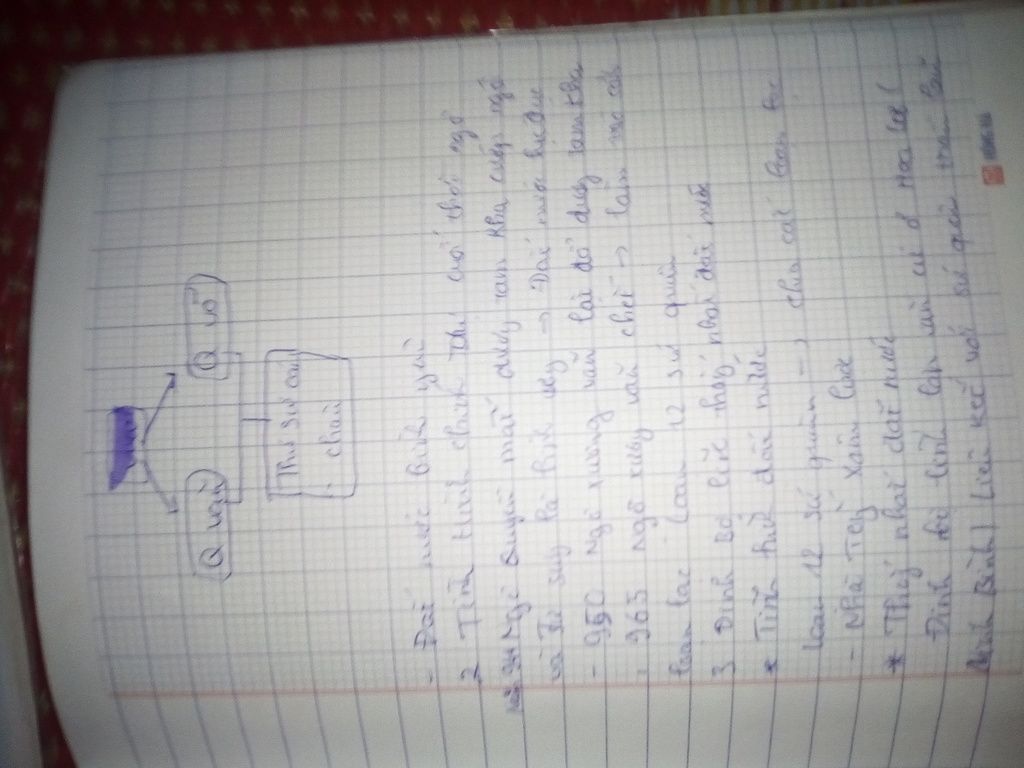 Q văn
Q võ
Thứ sử các
châu
- Đất nước bình yên
2 Tình hình chính trị cuối thời ngô
Ngô Quyền mất dương tam kha cướp ngôi
- 950 ngô xương văn lật đổ dương tam kha
, 965 ngô xương văn chết → làm
loạn lạc loạn 12 sứ quân
3 Đinh Bộ lĩnh thống nhất đất nước
* Tình hình đất nước
loạn 12 sứ quân → chia cắt loạn lạc
- Nhà Tống xâm lược
* Thống nhất đất nước
Đinh bộ lĩnh lập căn cứ ở Hoa Lư (
Ninh Bình) liên kết với sứ quân trần lãm